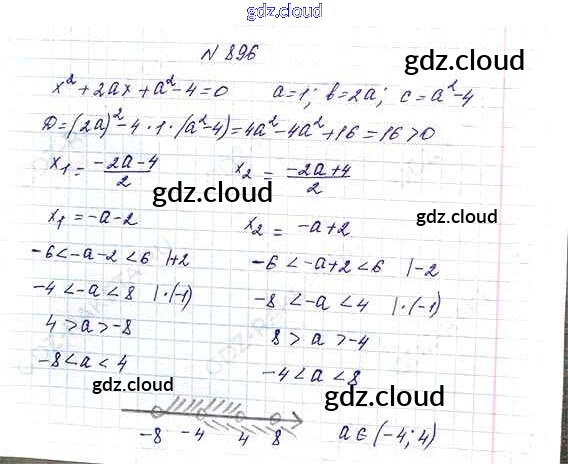 gdz.cloud
N 896
gdz.cloud
x²+2ax+a²-4=0 a=1; b=2a; c=a²-4
D=(2a)²-4·1·(a²-4)=4a²-4a²+16=16>0
x₁=(-2a-4)/2 x₂=(-2a+4)/2
gdz.cloud gdz.cloud
x₁=-a-2 x₂=-a+2
-6<-a-2<6 |+2 -6<-a+2<6 |-2
-4<-a<8 |·(-1) -8<-a<4 |·(-1)
4>a>-8 8>a>-4
-8<a<4 -4<a<8
gdz.cloud gdz.cloud
-8 -4 4 8 a∈(-4;4)